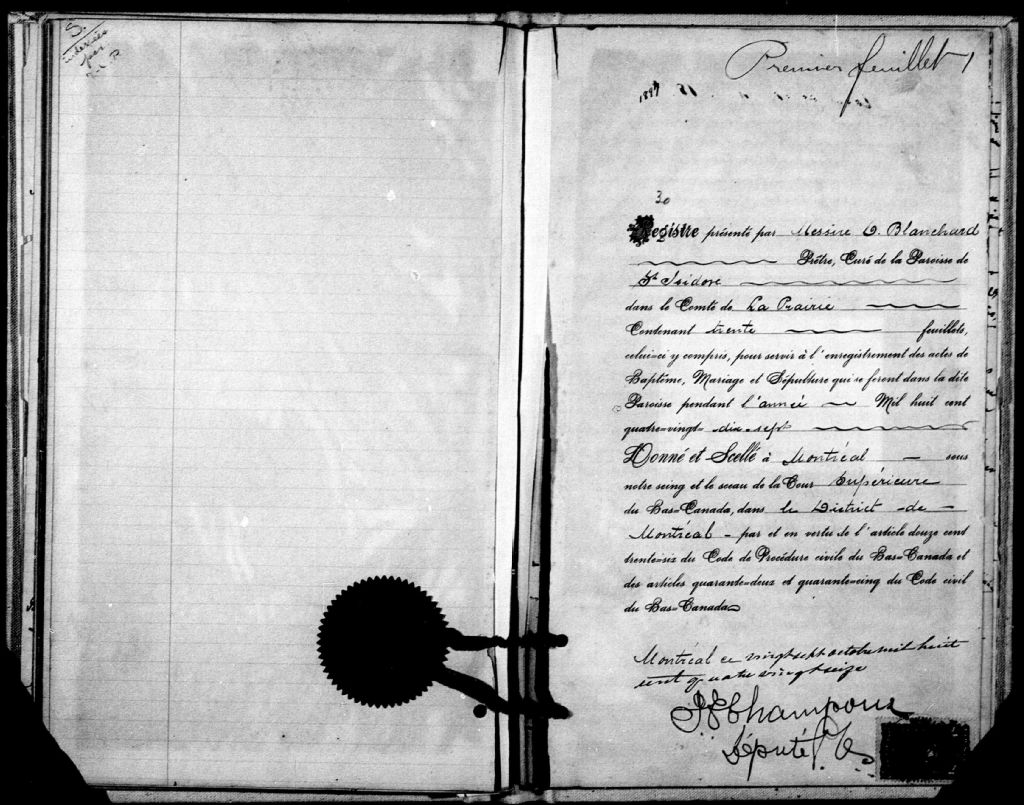 S
indexées
par
Premier feuillet 1
30
Registre présenté par Messire O. Blanchard
Prêtre, Curé de la Paroisse de
St Isidore
dans le Comté de La Prairie
Contenant trente feuillets,
celui-ci y compris, pour servir à l'enregistrement des actes de
Baptême, Mariage et Sépulture qui se feront dans la dite
Paroisse pendant l'année Mil huit cent
quatre-vingt- dix-sept
Donné et Scellé à Montréal — sous
notre seing et le sceau de la Cour Supérieure
du Bas-Canada, dans le District - de -
Montréal - par et en vertu de l'article douze cent
trente-six du Code de Procédure civile du Bas-Canada et
des articles quarante-deux et quarante-cinq du Code civil
du Bas-Canada
Montréal ce vingt sept octobre mil huit
cent quatre vingt seize
Député P.